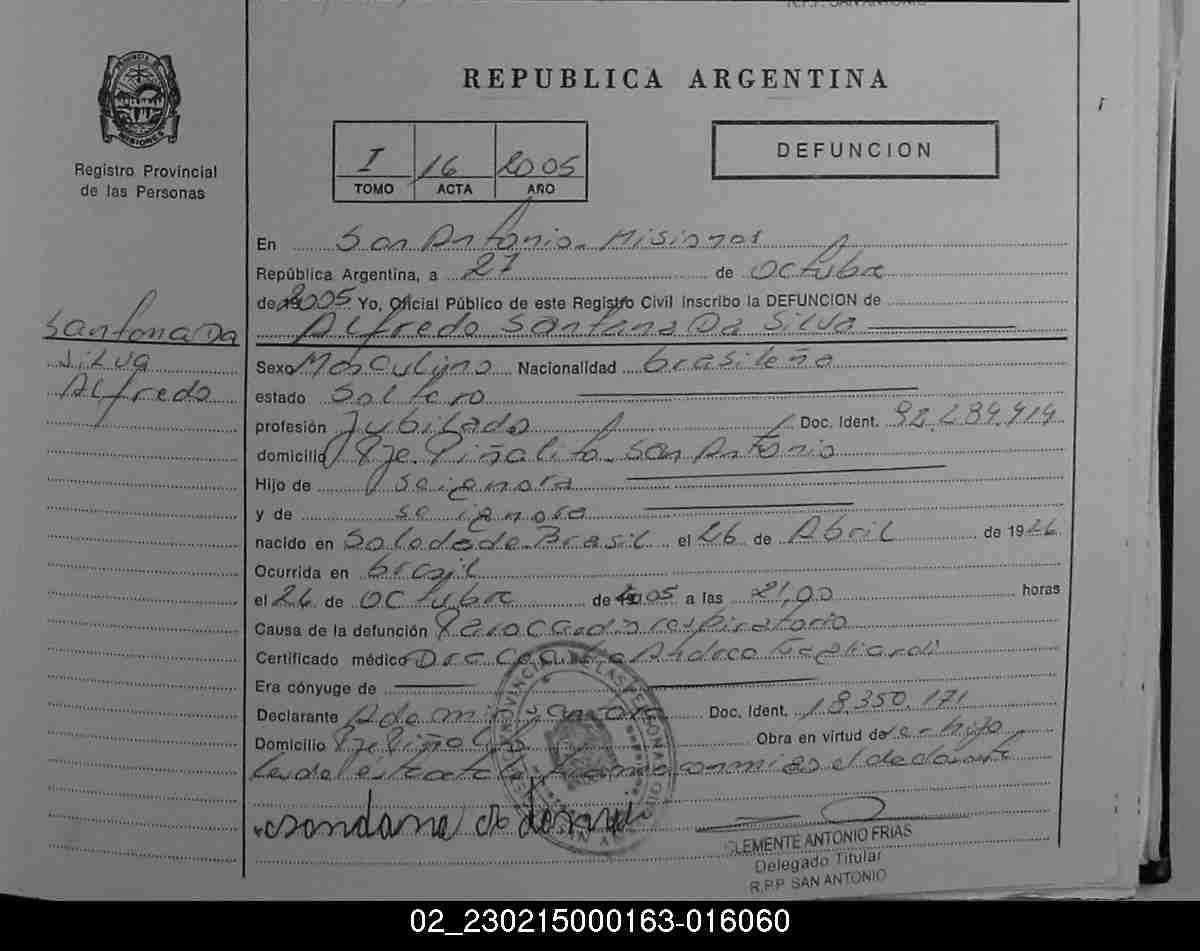 R.P.P. SAN ANTONIO
PROVINCIA DE
MISIONES
Registro Provincial
de las Personas
REPUBLICA ARGENTINA
I 16 2005
TOMO ACTA AÑO
DEFUNCION
En San Antonio - Misiones
República Argentina, a 27 de Octubre
de 2005 Yo, Oficial Público de este Registro Civil inscribo la DEFUNCION de
Alfredo Santana Da Silva
Santana Da
Silva
Alfredo
Sexo Masculino Nacionalidad brasileña
estado Soltero
profesión Jubilado Doc. Ident. 92.289.414
domicilio Pje. Piñalito - San Antonio
Hijo de se ignora
y de se ignora
nacido en Soledade Brasil el 26 de Abril de 1926
Ocurrida en brasil
el 26 de Octubre de 2005 a las 21,00 horas
Causa de la defunción Paro cardio respiratorio
Certificado médico Dra Andrea
Era cónyuge de
Declarante Doc. Ident. 18.350.171
Domicilio Pje Piñalito Obra en virtud de
Leida el acta la firma conmigo el declarante
CLEMENTE ANTONIO FRIAS
Delegado Titular
R.P.P. SAN ANTONIO
02_230215000163-016060